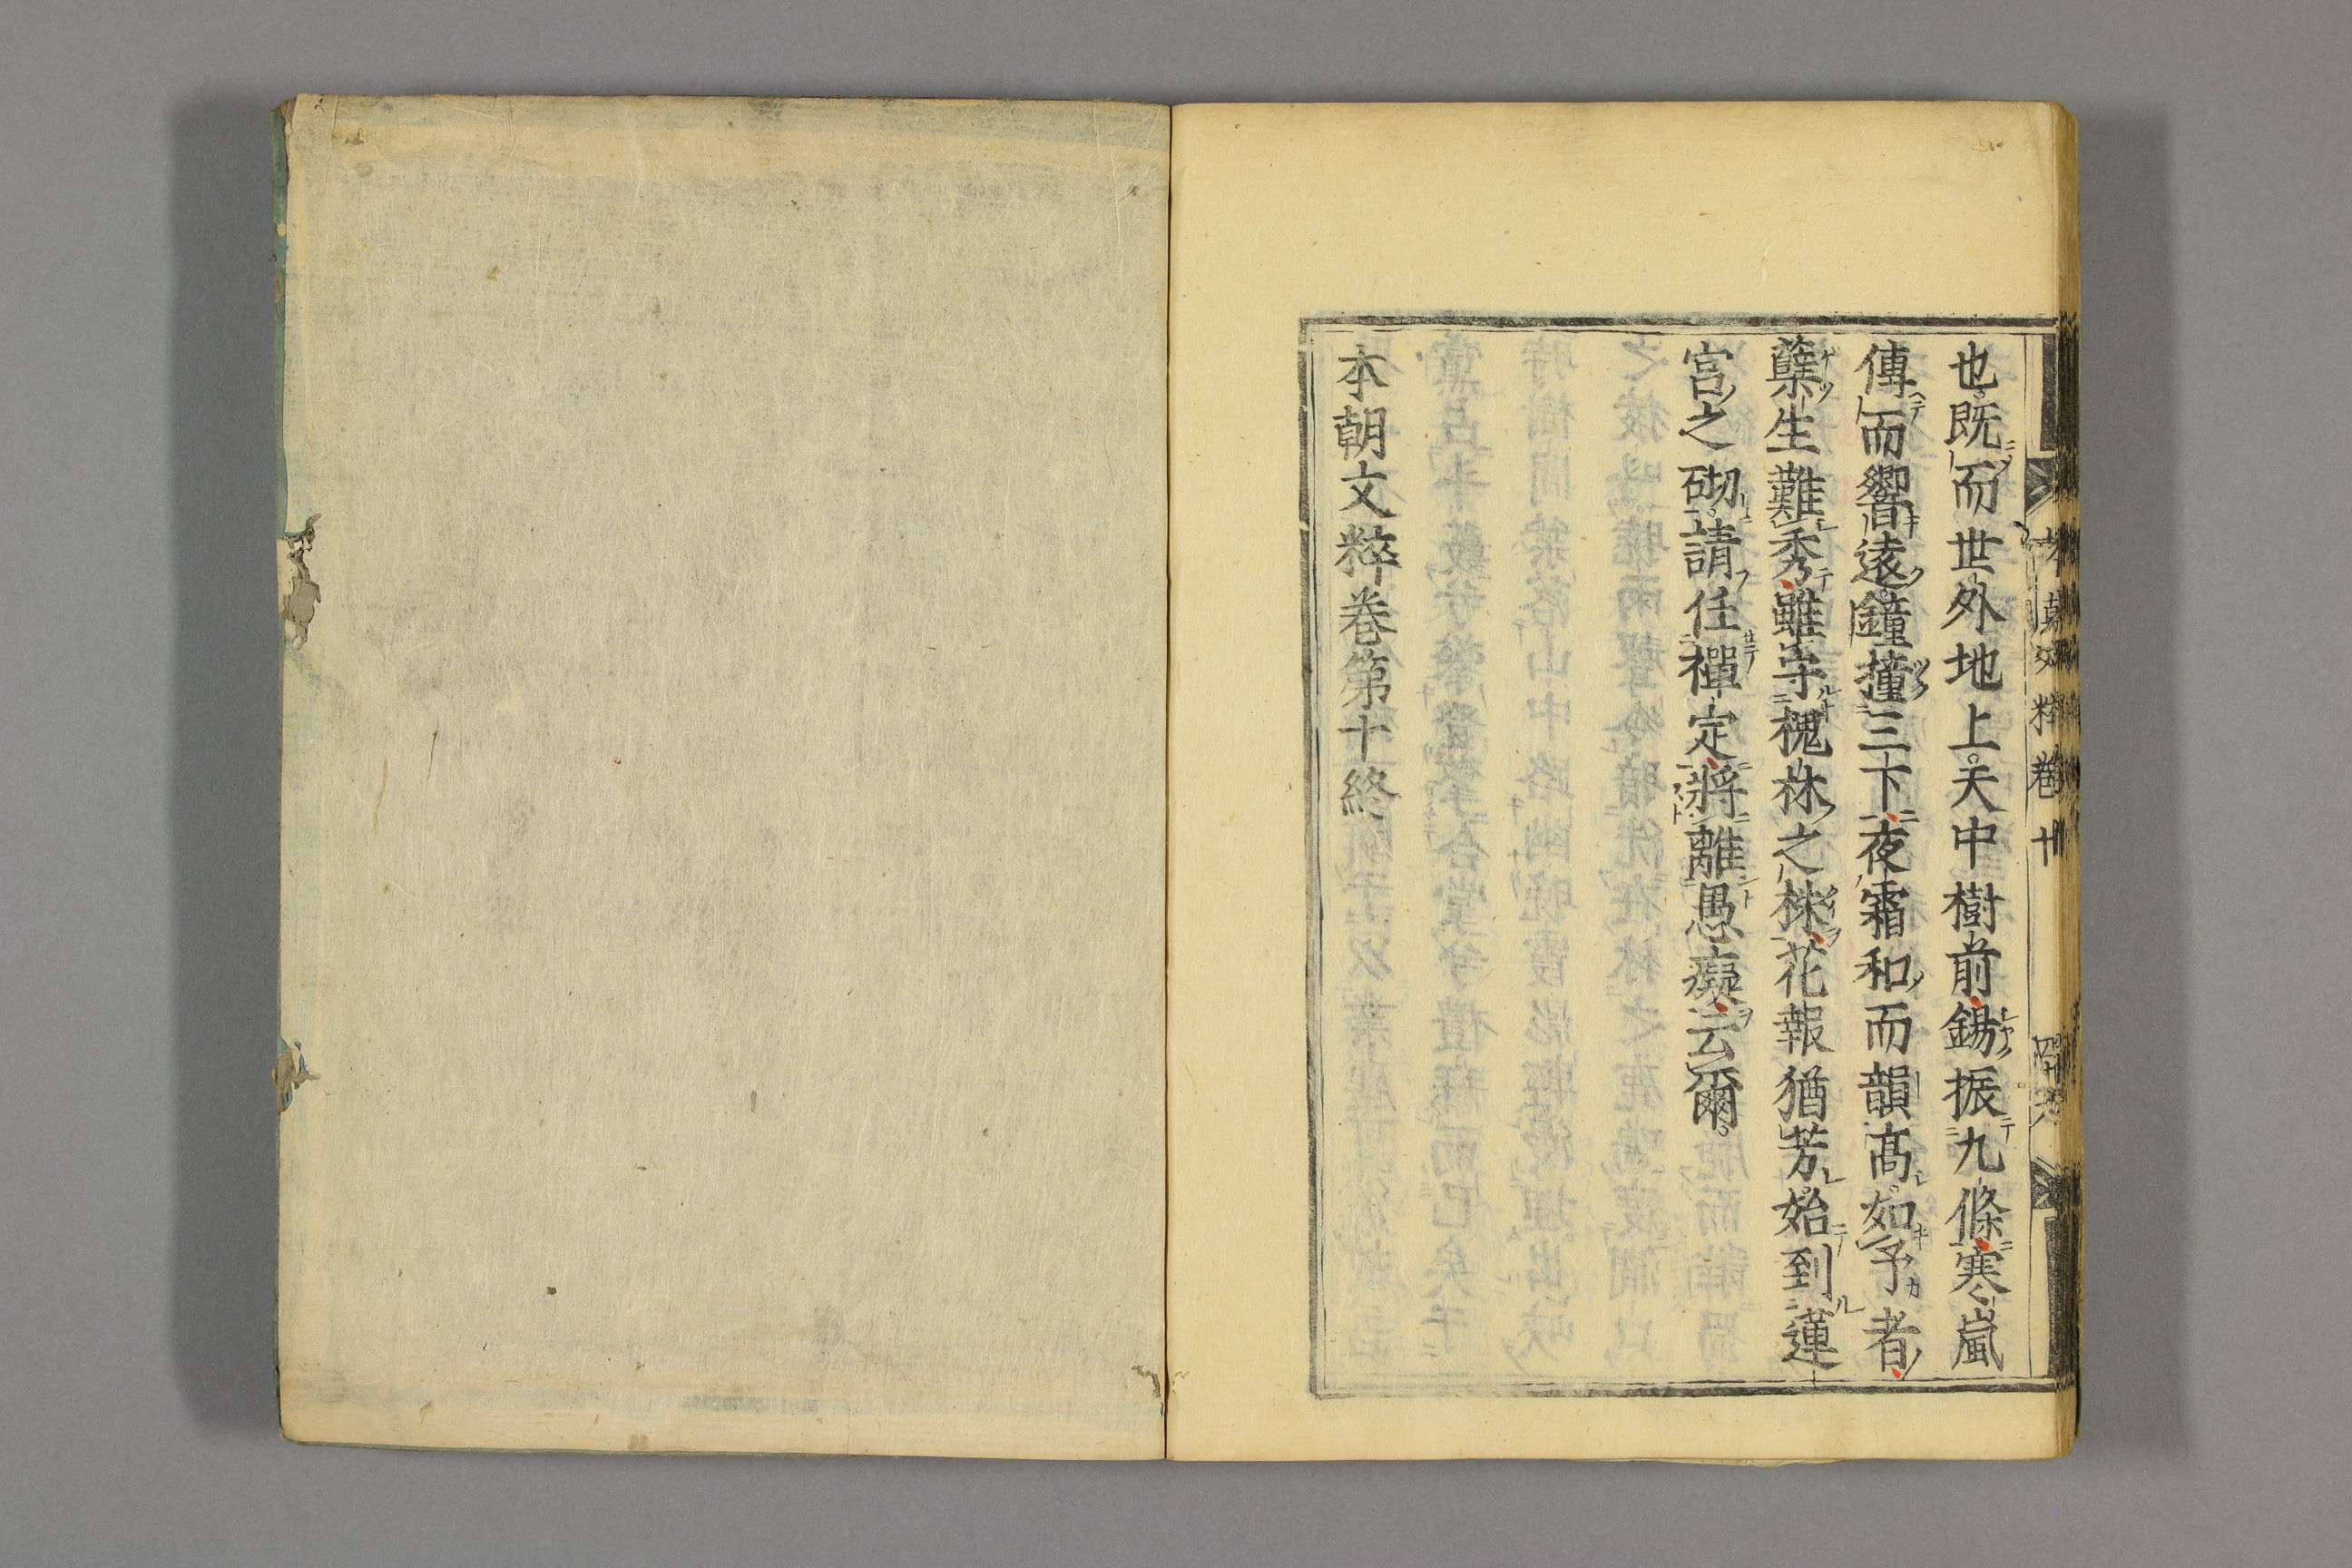 也既而世外地上天中樹前錫振九條寒嵐
傳而響遠鐘撞三下夜霜和而韻髙如予者
蘖生難秀雖守槐林之株花報猶芳始到蓮
宮之砌請任禪定將離愚癡云爾
本朝文粹卷第十終
本朝文粹卷十